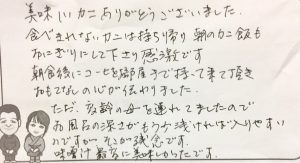 美味しいカニありがとうございました。
食べきれないカニは持ち帰り 朝のカニ飯も
おにぎりにして下さり感激です
朝食後にコーヒを部屋まで持って来て頂き
おもてなしの心が伝わりました。
ただ、高齢の母を連れてましたので
お風呂の深さがもう少し浅ければ入りやすい
のですが…そこが残念です。
味噌汁最高に美味しかったです。